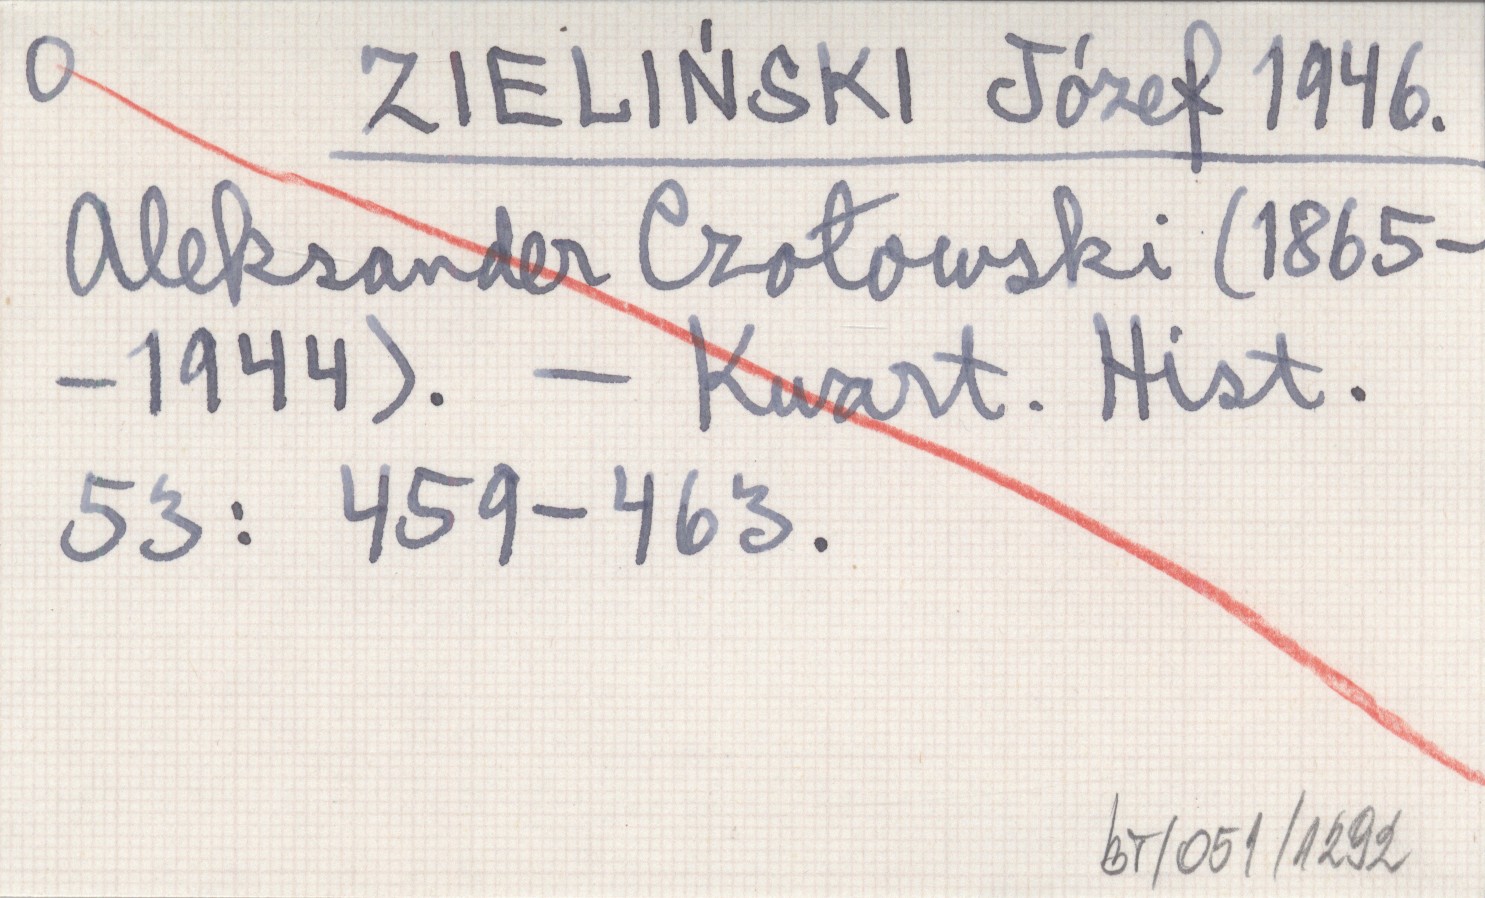 O ZIELIŃSKI Józef 1946.
Aleksander Czołowski (1865-
-1944). — Kwart. Hist.
53: 459-463.
bT/051/1292